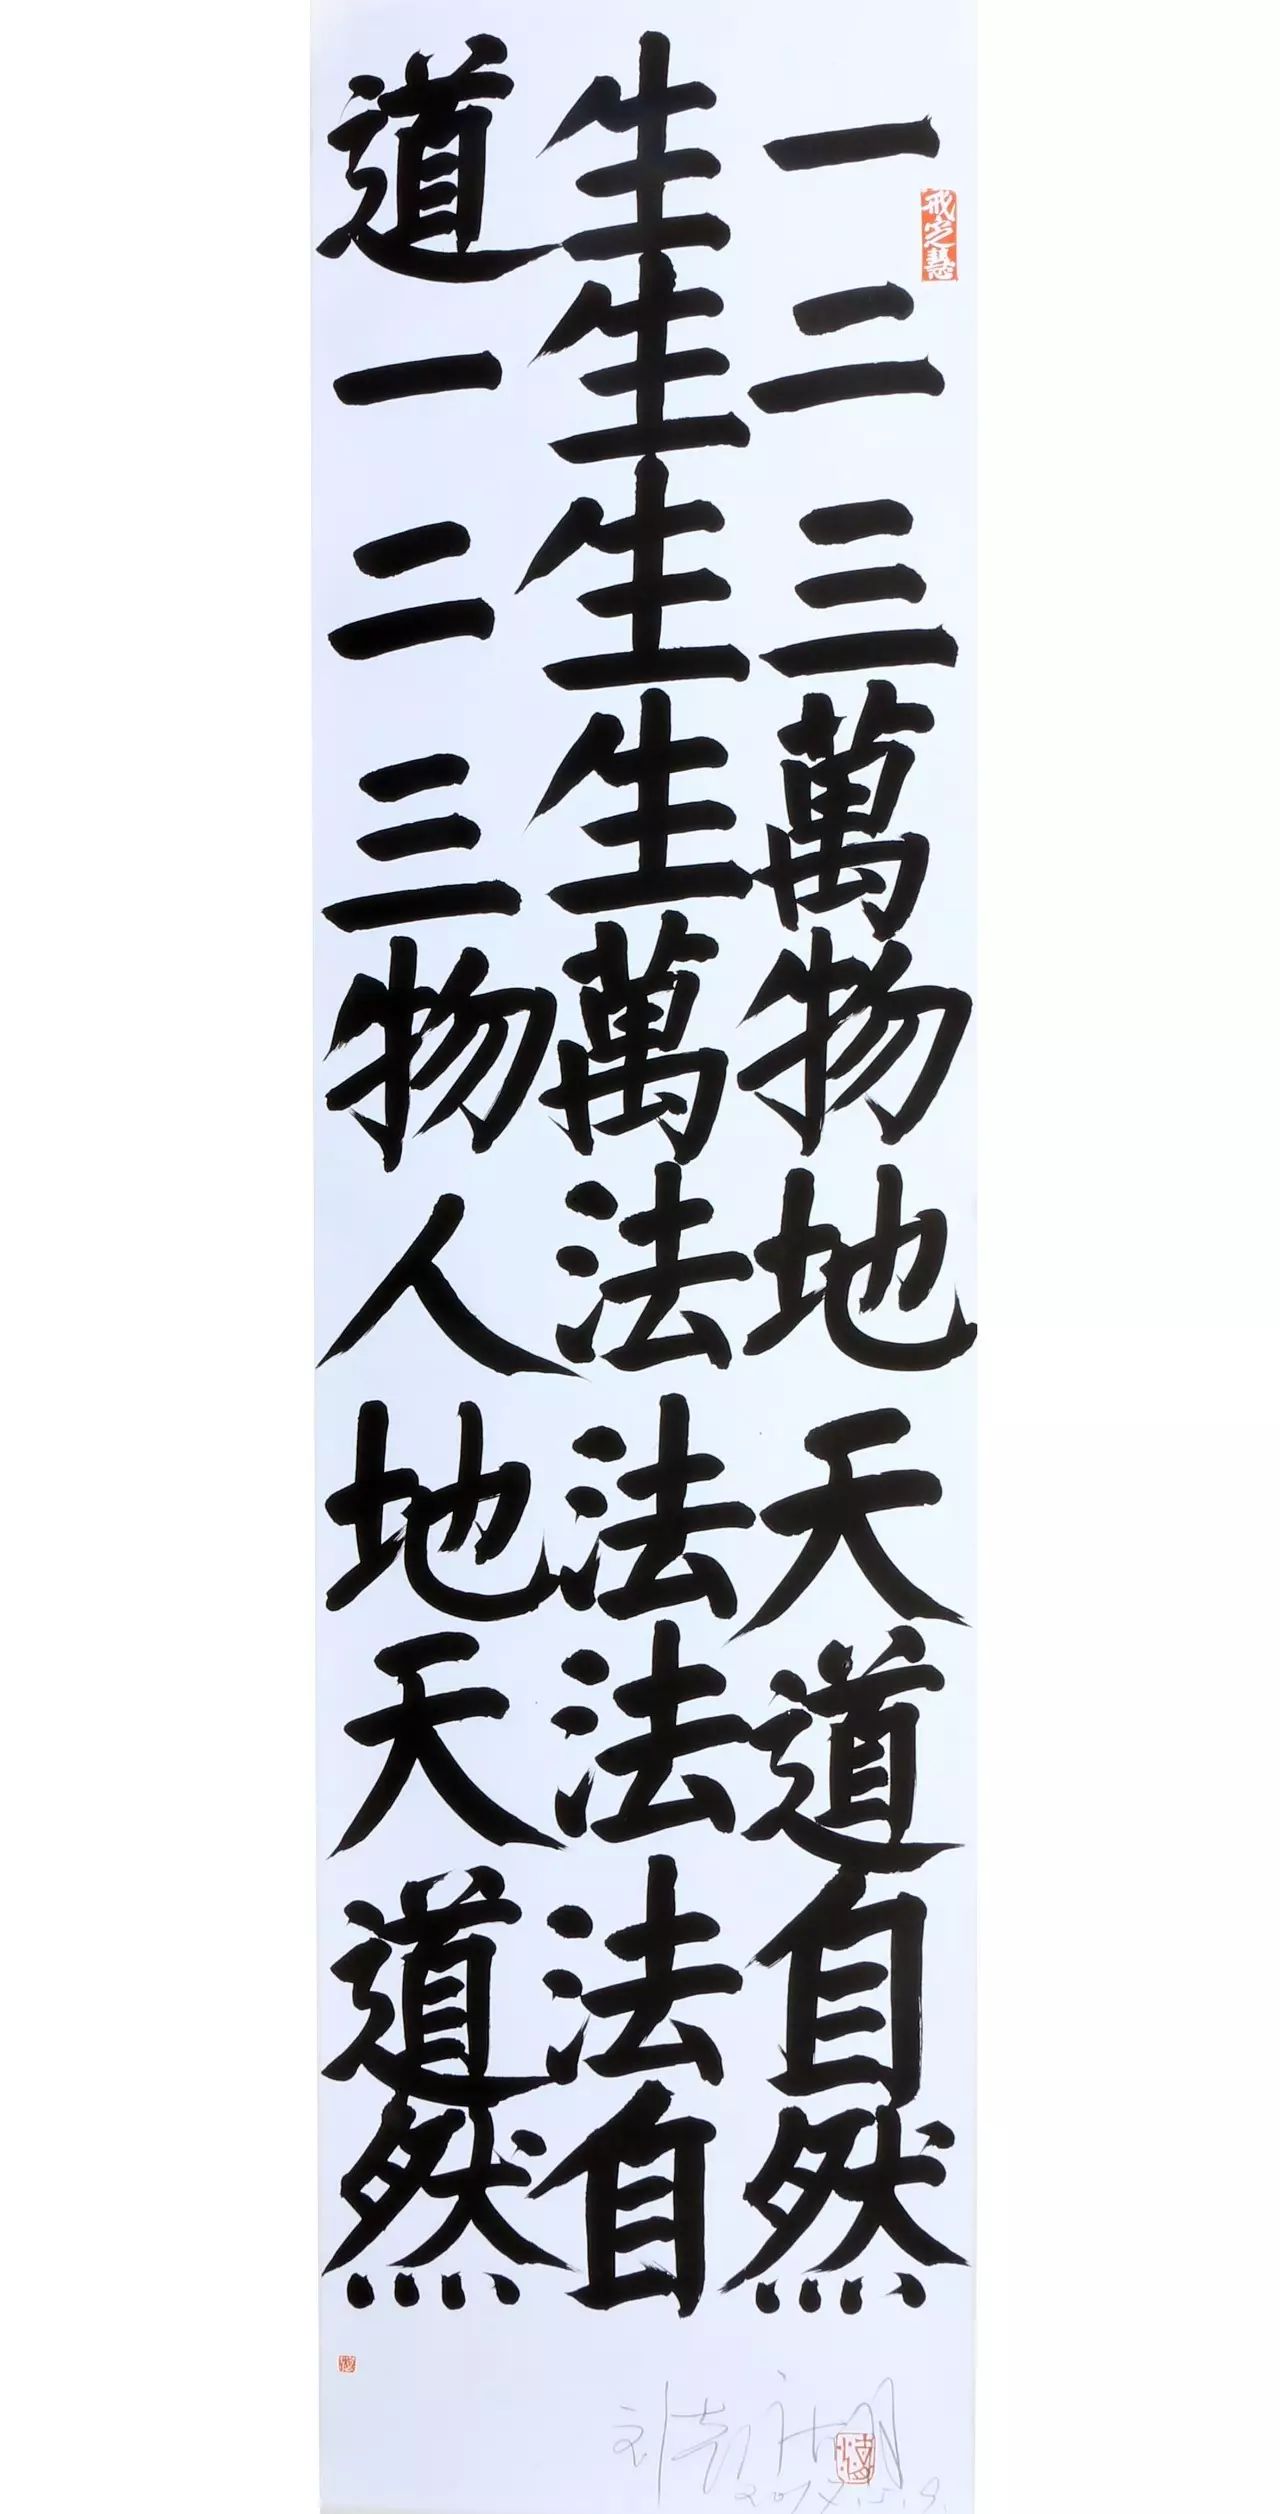 道生一
一生二
二生三
三生萬
物萬物
人法地
地法天
天法道
道法自
然自然
戒定慧